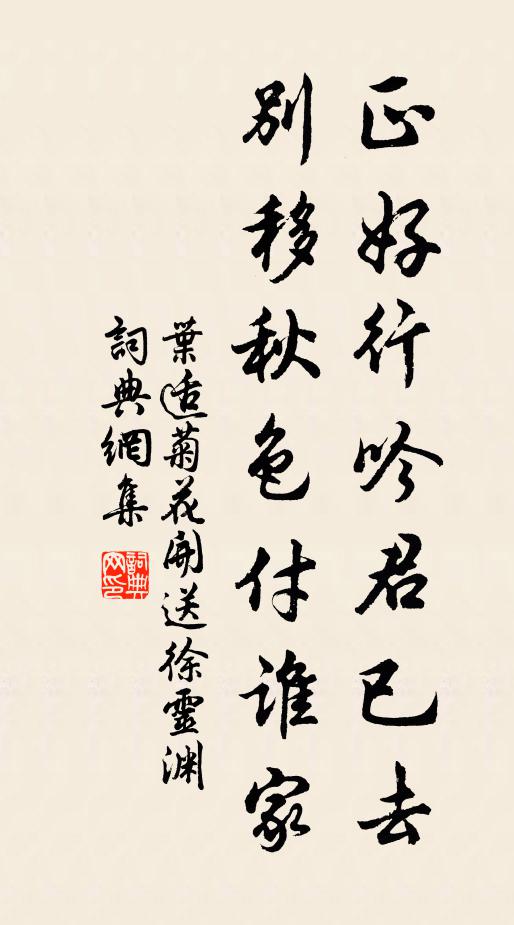 正好行吟君已去
別移秋色付誰家
葉适菊花開送徐靈淵
詞典網集
詞典網印